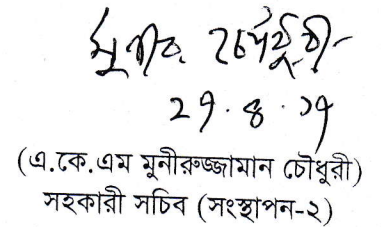 মুনীর চৌধুরী
২৭.৪.১৭
(এ.কে.এম মুনীরুজ্জামান চৌধুরী)
সহকারী সচিব (সংস্থাপন-২)